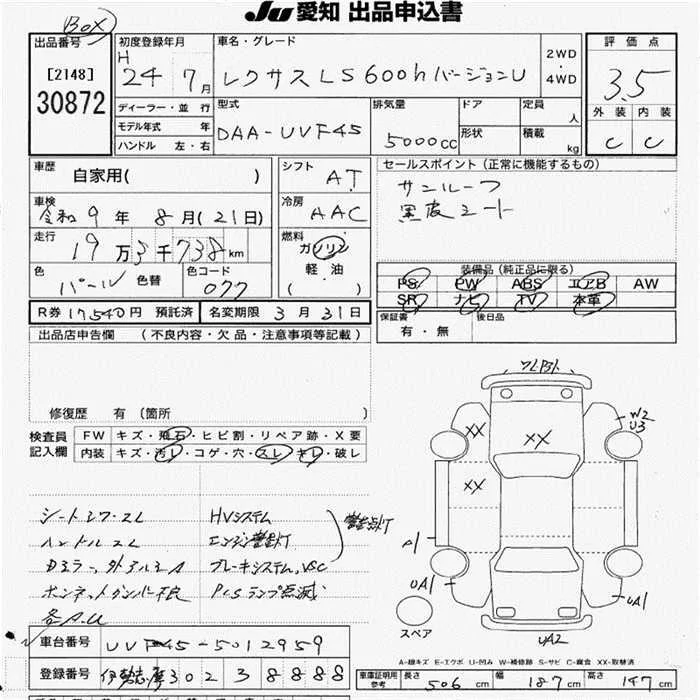 BOX
Ju愛知 出品申込書
出品番号
[2148]
30872
初度登録年月
H
24 7月
車名・グレード
レクサスLS600hバージョンU
2WD
・
4WD
評価点
3.5
外装 内装
C C
ディーラー・並行
モデル年式 年
ハンドル 左・右
型式
DAA-UVF45
排気量
5000CC
ドア
形状
定員
人
積載
kg
車歴
自家用( )
車検
令和9年 8月(21日)
走行
19万3千738km
色
パール
色替
色コード
077
シフト
AT
冷房
AAC
燃料
ガソリン
軽油
( )
セールスポイント(正常に機能するもの)
サンルーフ
黒皮シート
装備品(純正品に限る)
PS PW ABS エアB AW
SR ナビ TV 本革
保証書
有・無
後日品
R券 17,540円 預託済
名変期限 3月31日
出品店申告欄 (不良内容・欠品・注意事項等記載)
修復歴 有(箇所 )
検査員
記入欄
FW キズ・飛石・ヒビ割・リペア跡・X要
内装 キズ・汚レ・コゲ・穴・スレ・キレ・破レ
シートシワ・スレ
ハンドルスレ
ボンネットダンパー不良
各A.U
HVシステム
エンジン警告灯
ブレーキシステム、VSC
PCSランプ点滅
警告点灯
XX
XX
XX
W2
U3
A1
UA1
UA1
UA2
スペア
A-線キズ E-エクボ U-凹み W-補修跡 S-サビ C-腐食 XX-取替済
車台番号
UVF45-5012959
登録番号
伊勢志摩302 3 8888
車庫証明用
参考
長さ 506cm
幅 187cm
高さ 147cm